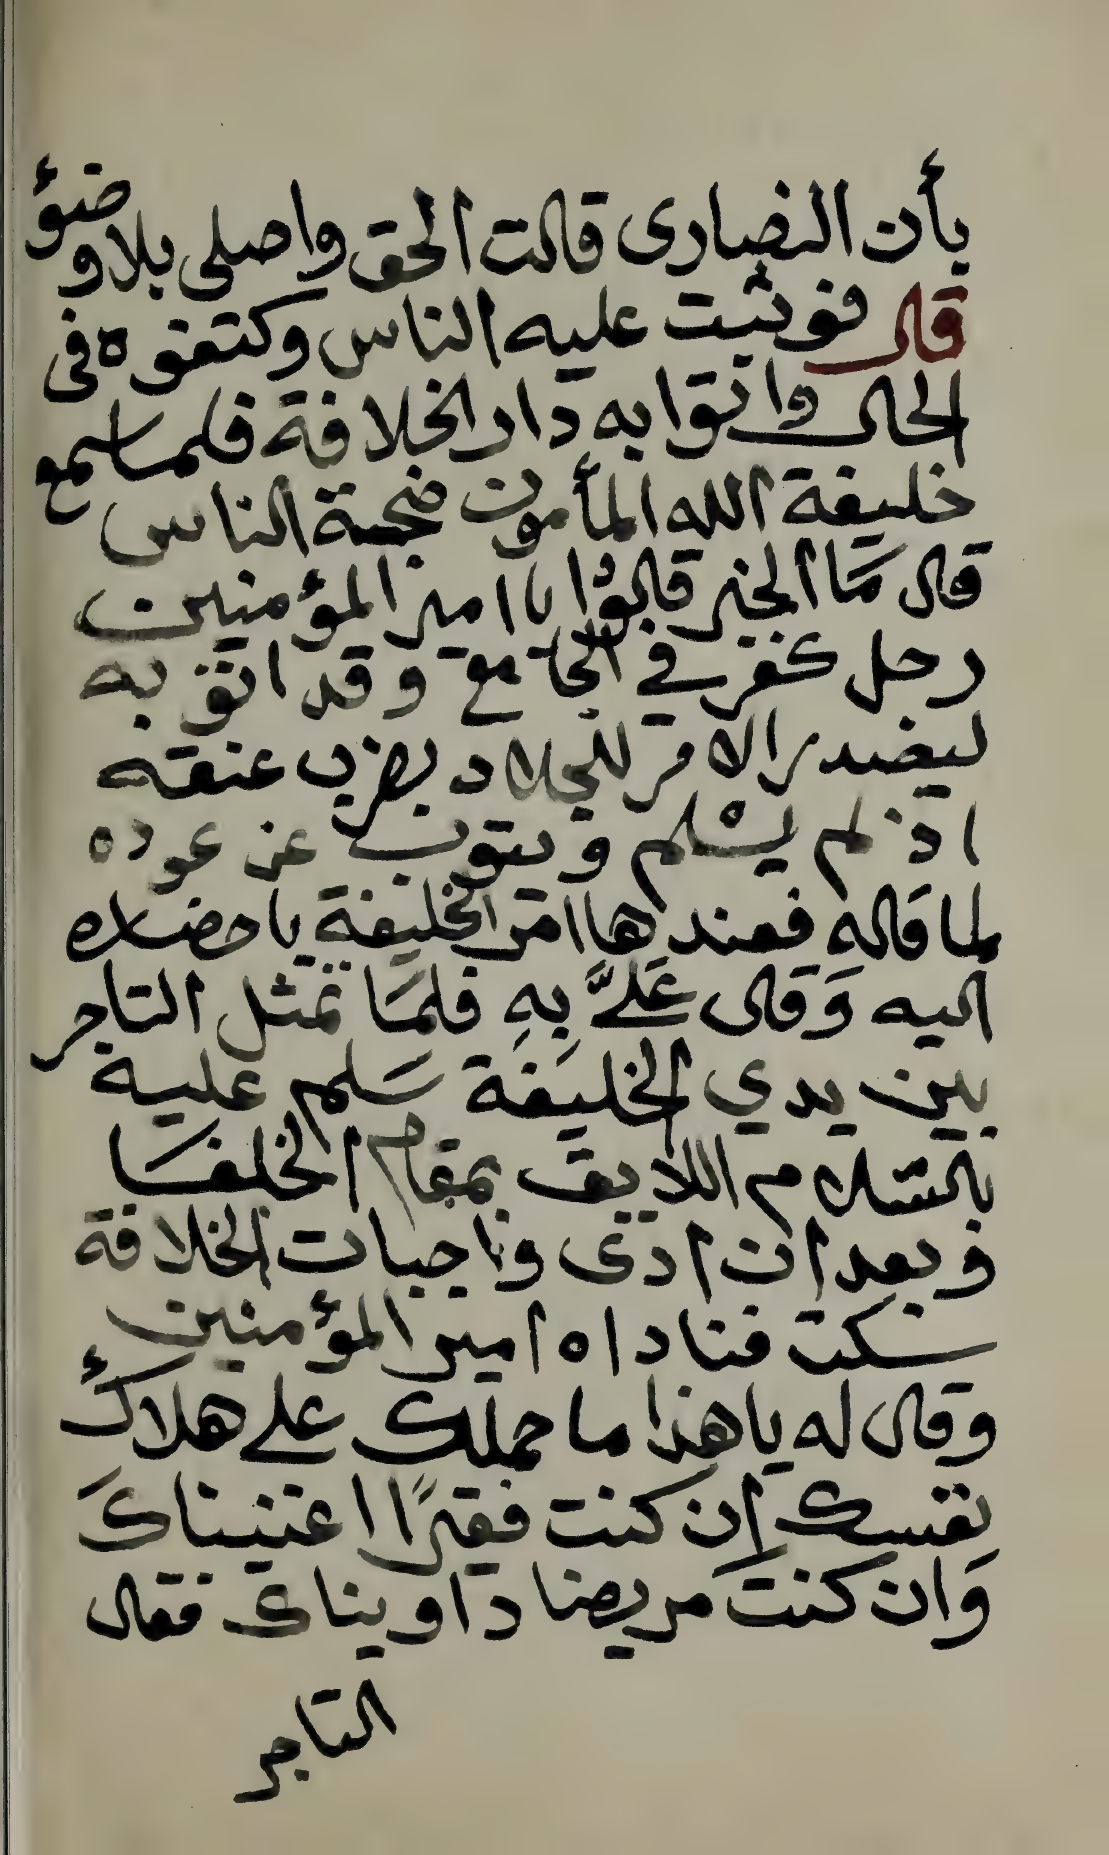 بأن النصارى قالت الحق واصلى بلا وضوٴ
قال فوثبت عليه الناس وكتفوه فى
الحال واتوا به دار الخلافة فلما سمع
خليفة الله المأمون ضجة الناس
قال مَا الخبر قالوُا يا امير المؤمنين
رجل كفر في الجامع وقد اتو به
ليصدر الامر للجلاد بضرب عنقه
اذ لم يسْلم ويتوب عن عوده
لما قاله فعندها امر الخليفة باحضاره
اليه وَقال عَلىَّ بِهِ فلمَا تمثل التاجر
بين يدي الخليفة سَلم عليه
بالسّلام اللايق بمقام الخلفَا
وبعد ان ادى واجبات الخلافة
سكت فناداه امير المؤمنين
وقال له يا هذا ما حملك على هلاك
نفسك إن كنت فقيرًا اغنيناكَ
وَان كنتَ مريضا داويناك فقال
التاجر